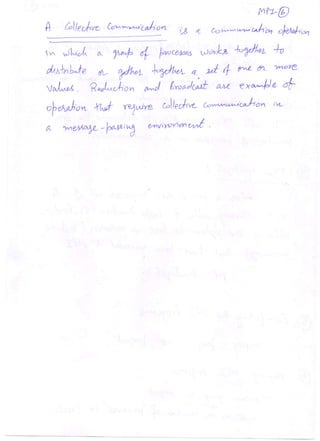 MPI-⑥
A Collective Communication is a communication operation
in which a group of processes works together to
distribute or gather together a set of one or more
values. Reduction and broadcast are example of
operation that require collective communication in
a message-passing environment.